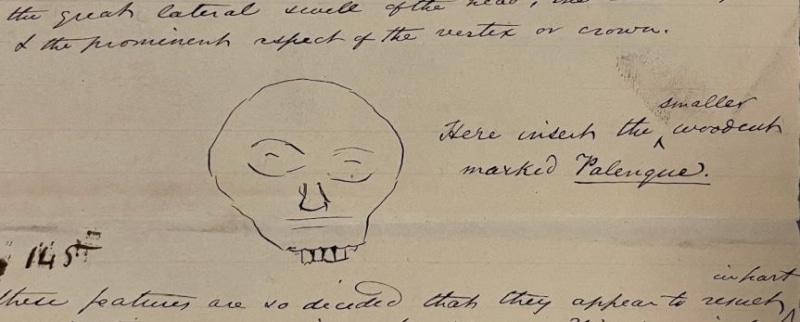 the great lateral swell of the head, the
& the prominent aspect of the vertex or crown.
smaller
Here insert the ^ woodcut
marked Palenque.
145th
in part
these features are so decided that they appear to result ^